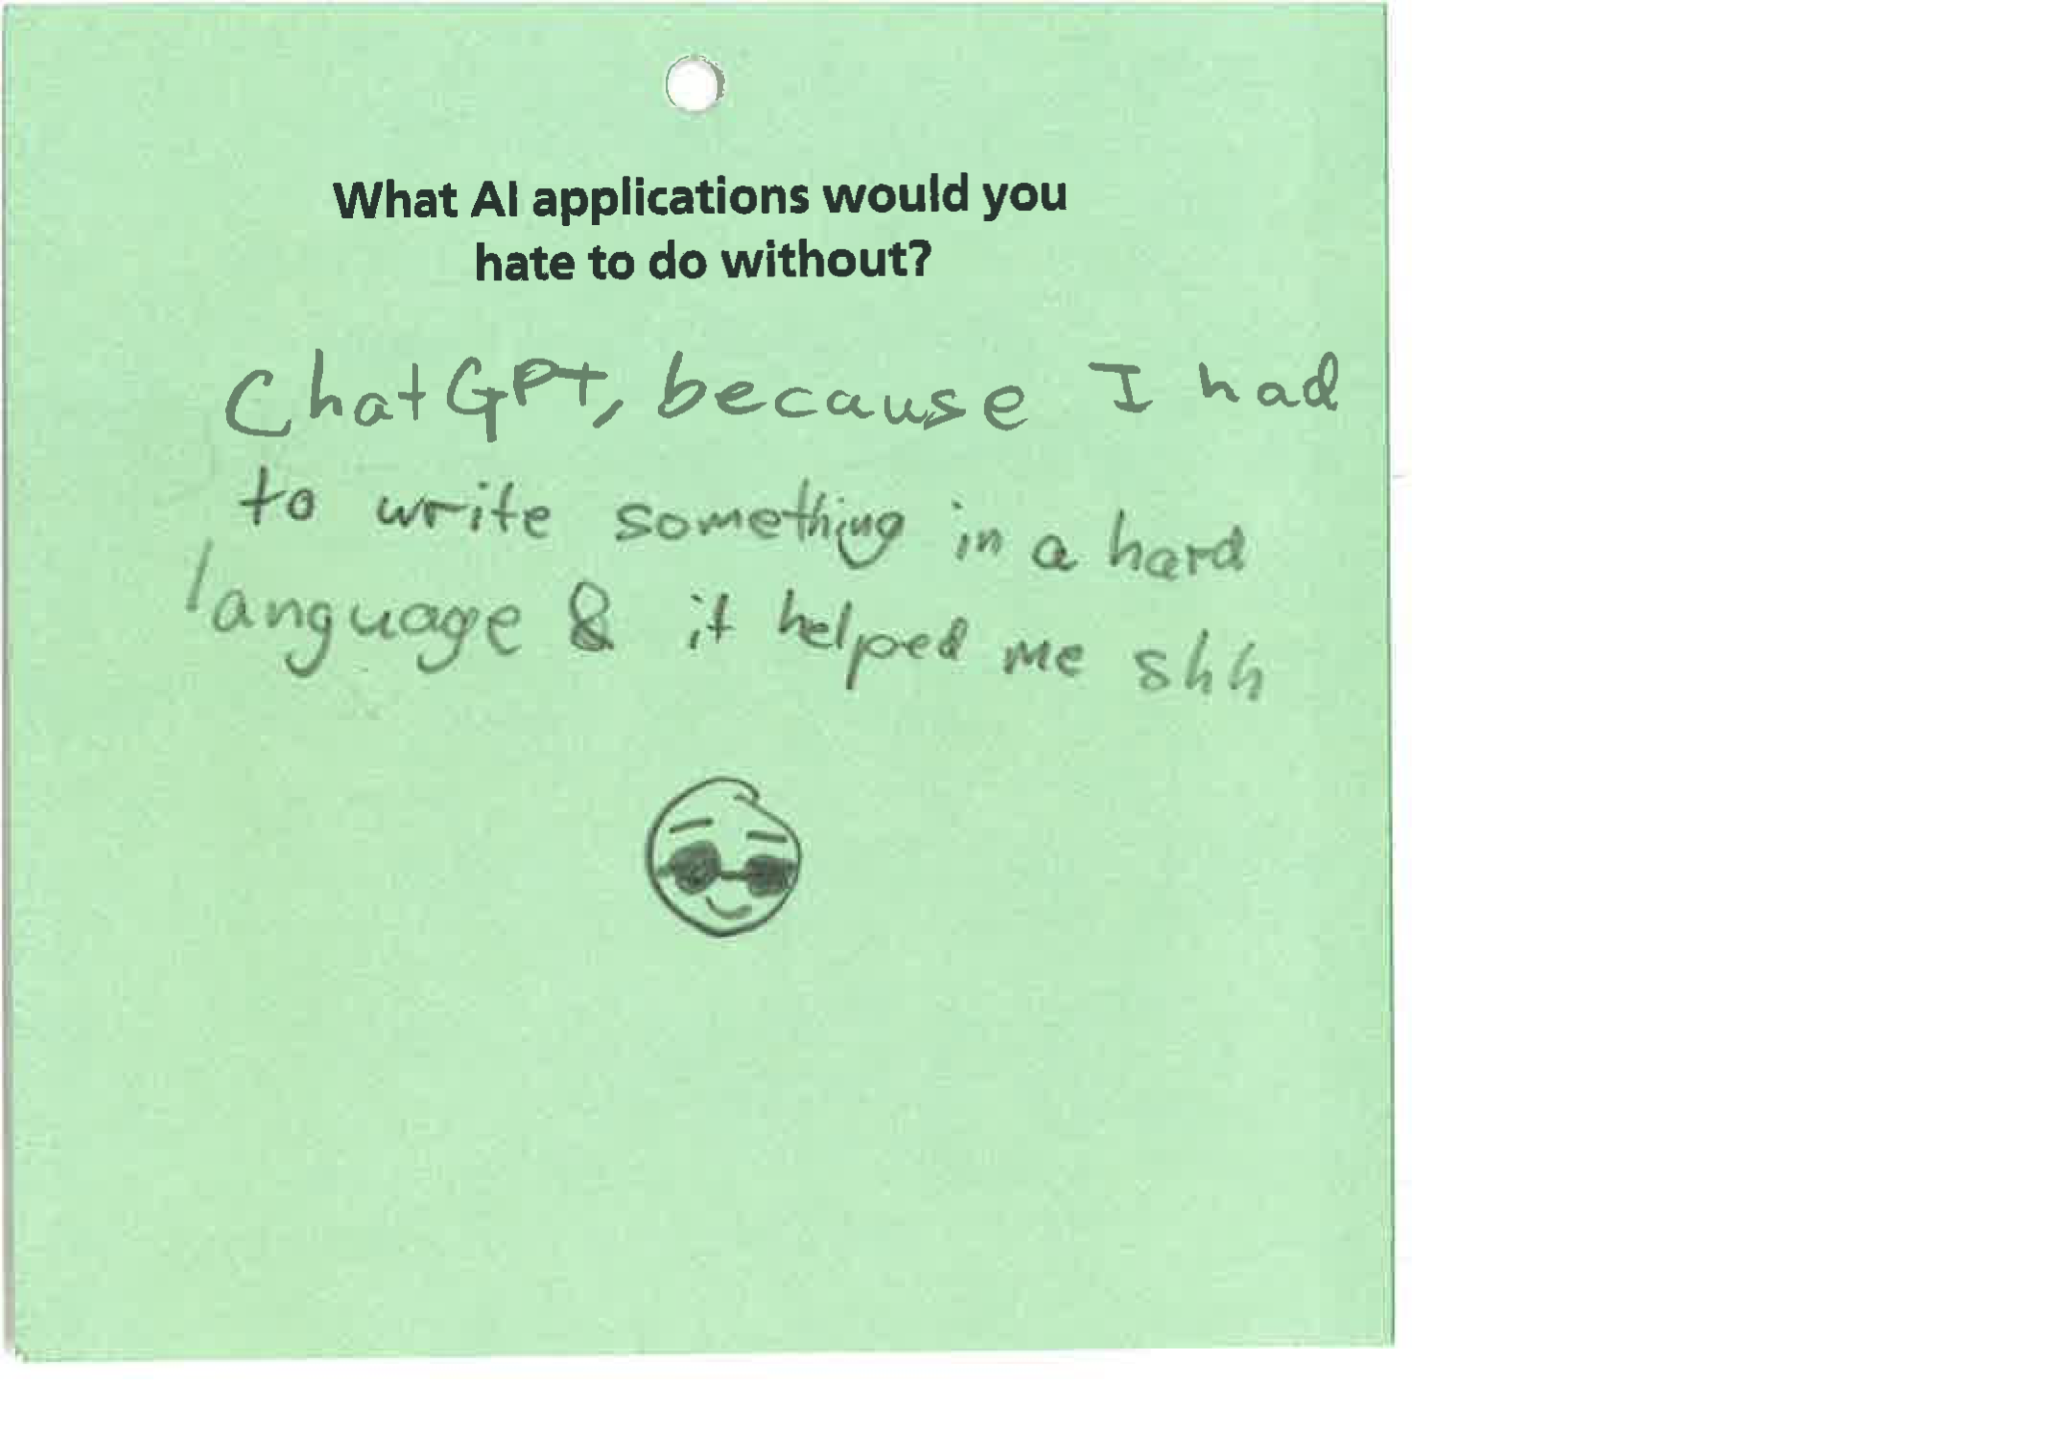 What AI applications would you
hate to do without?
ChatGPT, because I had
to write something in a hard
language & it helped me shh